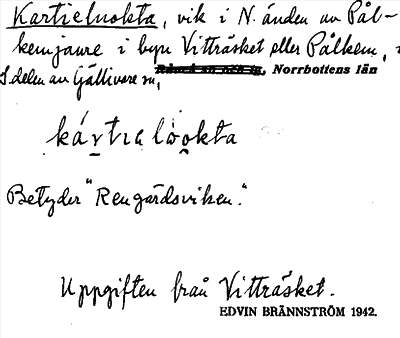 Kartieluokta, vik i N. änden av Pål-
kemjaure i byn Vitträsket eller Pålkem, i
S. delen av Gällivare sn, Norrbottens län
kártialòokta
Betyder "Rengärdsviken."
Uppgiften från Vitträsket.
EDVIN BRÄNNSTRÖM 1942.